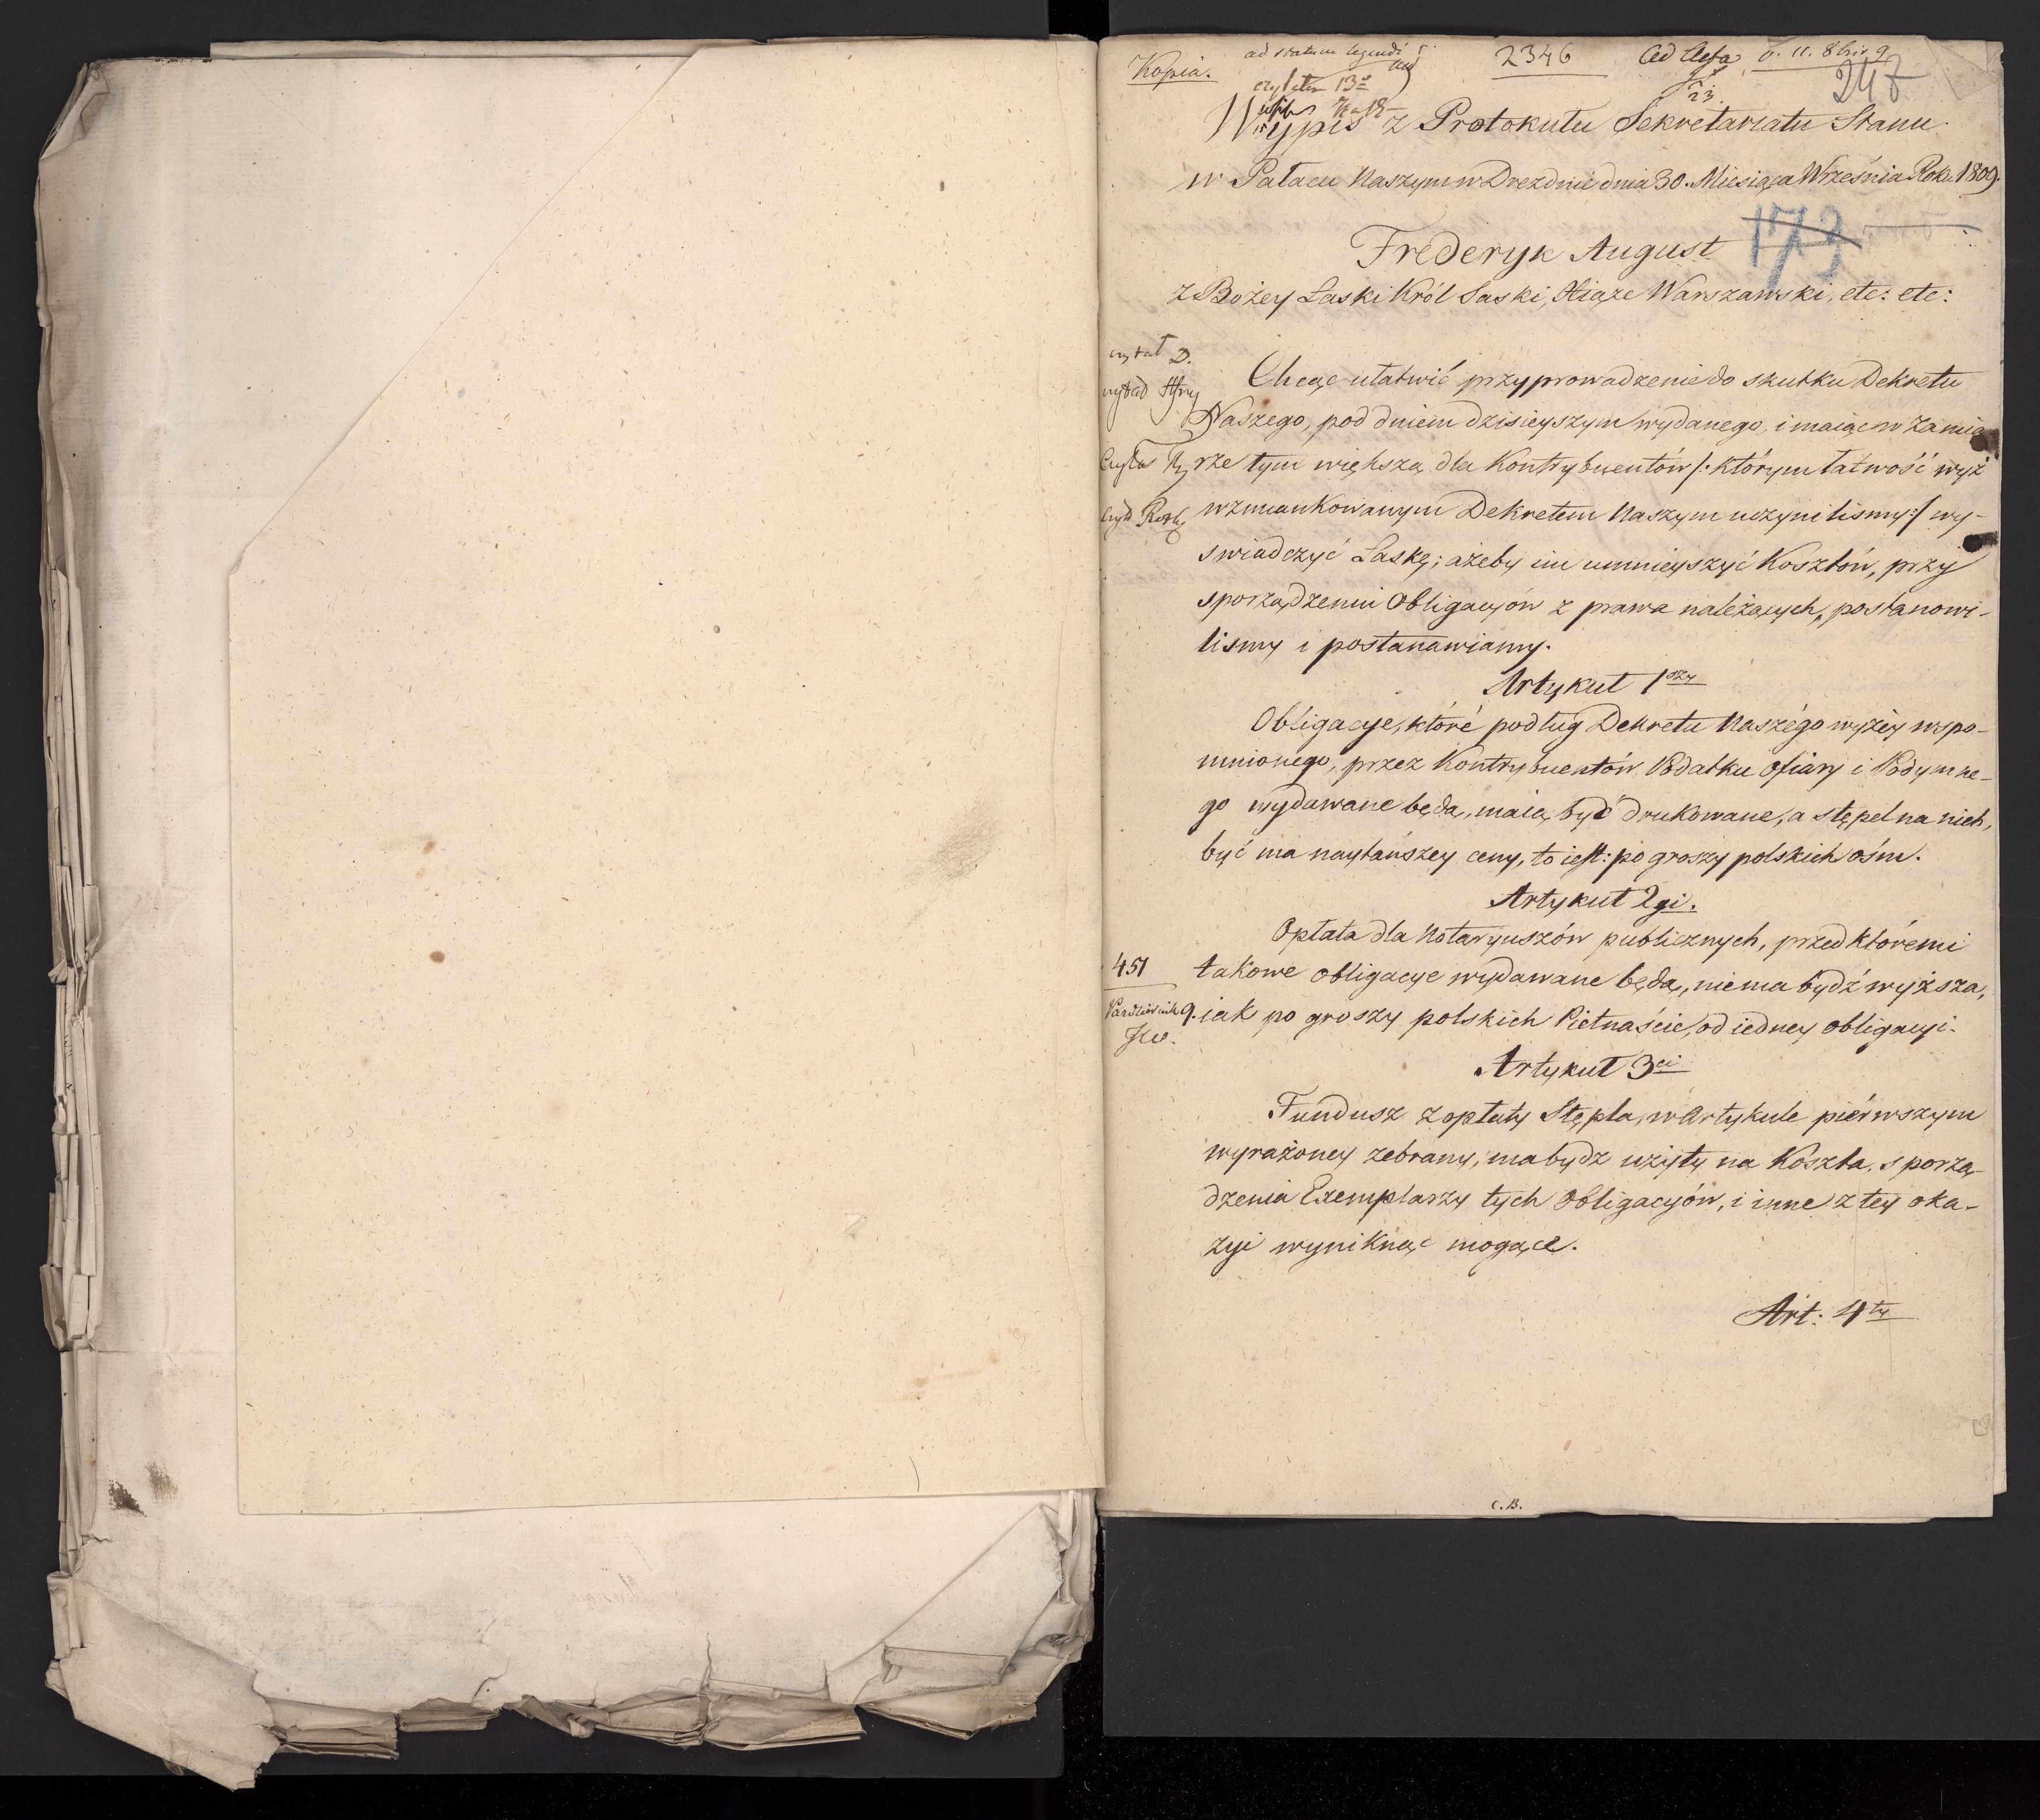 Kopia.
ad statum legendi
2346
Ad Acta
247
czytałem 13º
23
Wypis z Protokułu Sekretaryatu Stanu
w Pałacu Naszym w Dreznie dnia 30. Miesiąca Września Roku 1809.
173
Frederyk August
z Bożey Łaski Król Saski, Xiąże Warszawski, etc: etc:
czytał D.
Chcąc ułatwić przyprowadzenie do skutku Dekretu
czytał
Naszego, pod dniem dzisieyszym wydanego, i maiąc w zamia
czytał
rze tym większą dla Kontrybuentów /: którym łatwość wyż
czyt
wzmiankowanym Dekretem Naszym uczynilismy :/ wy-
swiadczyć Łaskę; ażeby im umnieyszyć Kosztów, przy
sporządzeniu Obligacyów z prawa należących, postanowi-
lismy i postanawiamy.
Artykuł 1szy
Obligacye, które podług Dekretu Naszégo wyżéy wspo-
mnionego, przez Kontrybuentów Podatku Ofiary i Podymne-
go wydawane będą, maią być drukowane, a stępel na nich,
być ma naytańszey ceny, to iest: po groszy polskich ośm.
Artykuł 2gi.
Opłata dla Notaryuszów publicznych, przed któremi
451
takowe obligacye wydawane będą, niema bydź wyższa,
Październik 9.
iak po groszy polskich Pietnaście, od iedney obligacyi.
Artykuł 3ci
Fundusz z opłaty Stępla, w Artykule piérwszym
wyrażoney zebrany, ma bydz użyty na Koszta sporzą-
dzenia Exemplarzy tych Obligacyów, i inne z tey oka-
zyi wyniknąć mogące.
Art: 4ty
C.B.